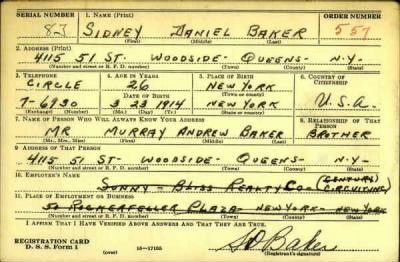 SERIAL NUMBER 1. NAME (Print) ORDER NUMBER
83 SIDNEY DANIEL BAKER 557
(First) (Middle) (Last)
2. ADDRESS (Print)
4115 51 ST- WOODSIDE- QUEENS- N-Y-
(Number and street or R. F. D. number) (Town) (County) (State)
3. TELEPHONE 4. AGE IN YEARS 5. PLACE OF BIRTH 6. COUNTRY OF CITIZENSHIP
CIRCLE 26 NEW YORK
DATE OF BIRTH (Town or county)
7-6930 3 23 1914 NEW YORK U.S.A.
(Exchange) (Number) (Mo.) (Day) (Yr.) (State or country)
7. NAME OF PERSON WHO WILL ALWAYS KNOW YOUR ADDRESS 8. RELATIONSHIP OF THAT PERSON
MR MURRAY ANDREW BAKER BROTHER
(Mr., Mrs., Miss) (First) (Middle) (Last)
9. ADDRESS OF THAT PERSON
4115 51 ST- WOODSIDE- QUEENS- N-Y-
(Number and street or R. F. D. number) (Town) (County) (State)
10. EMPLOYER'S NAME
SUNNY-BLISS REALTY CO (CENTURY CIRCUIT INC)
11. PLACE OF EMPLOYMENT OR BUSINESS
50 ROCKERFELLER PLAZA- NEW YORK- NEW YORK
(Number and street or R. F. D. number) (Town) (County) (State)
I AFFIRM THAT I HAVE VERIFIED ABOVE ANSWERS AND THAT THEY ARE TRUE.
REGISTRATION CARD
D. S. S. Form 1 (over) 16-17105 SD Baker
(Registrant's signature)